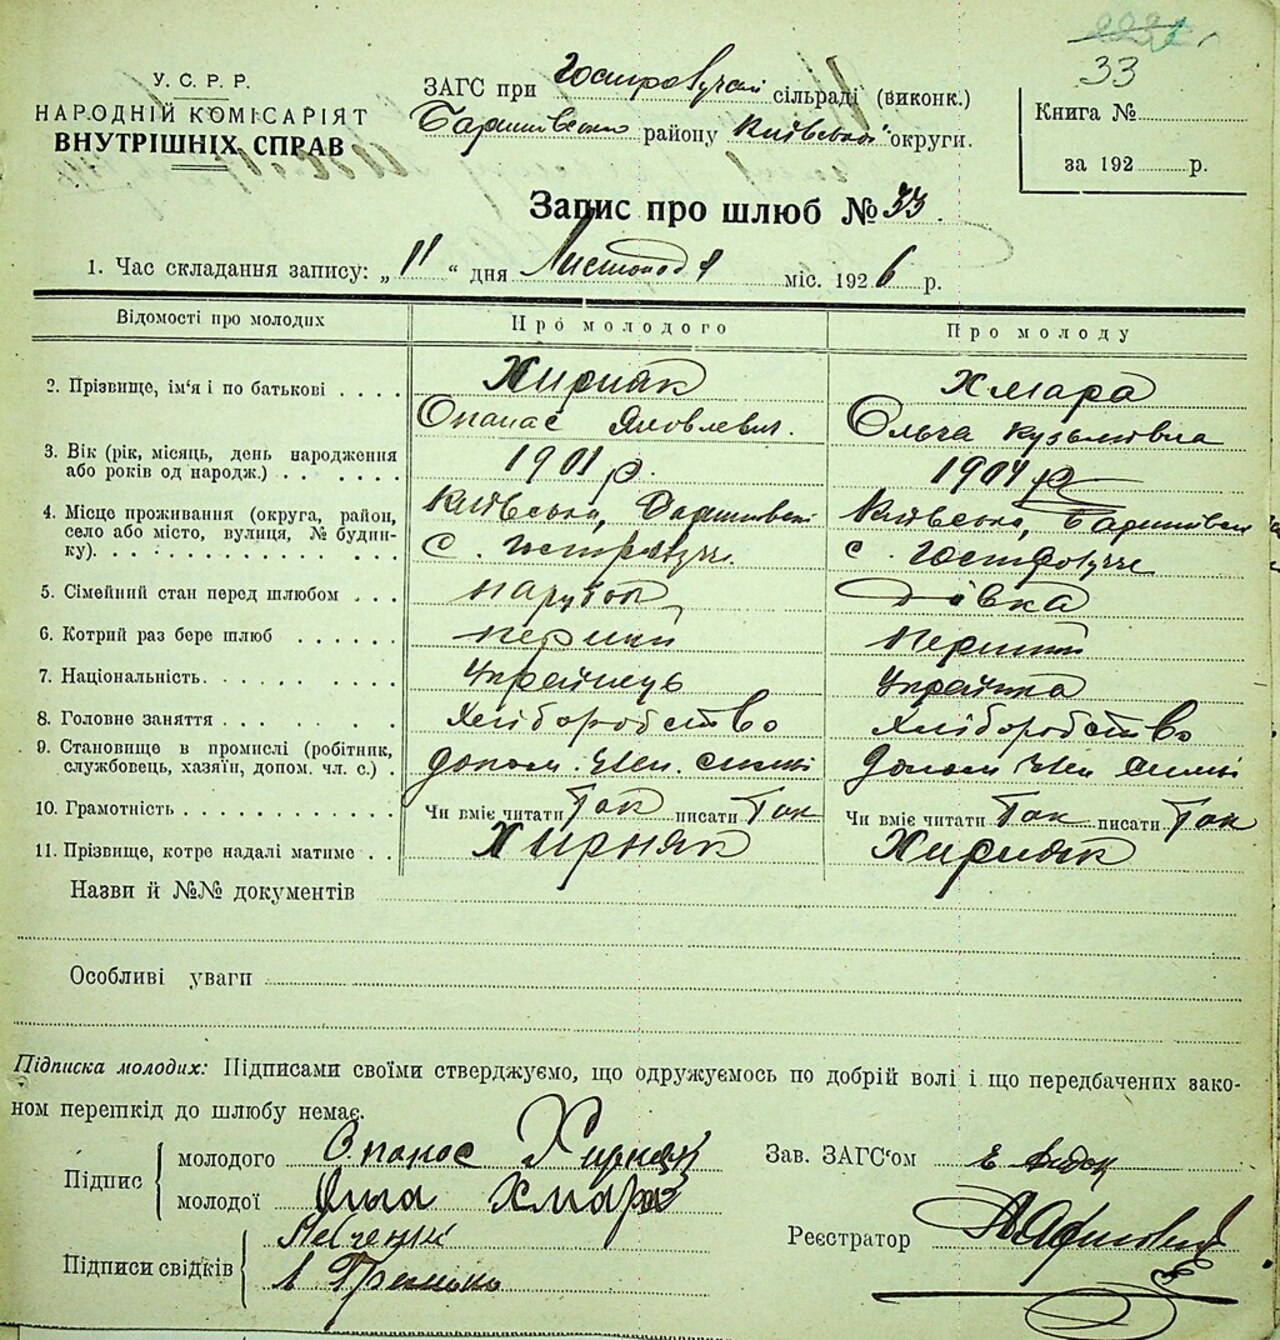 33
У.С.Р.Р.
НАРОДНІЙ КОМІСАРІЯТ
ВНУТРІШНІХ СПРАВ
ЗАГС при сільраді (виконк.)
району Київської округи.
Книга №
за 192 р.
Запис про шлюб № 33.
1. Час складання запису: „11“ дня Листопада міс. 1926 р.
Відомості про молодих
Про молодого
Про молоду
2. Прізвище, ім'я і по батькові
Хирняк
Опанас Яковлевич.
Хмара
Ольга Кузьмівна
3. Вік (рік, місяць, день народження
або років од народж.)
1901 р.
1904 р
4. Місце проживання (округа, район,
село або місто, вулиця, № будин-
ку).
Київська,
с.
Київська,
с.
5. Сімейний стан перед шлюбом
парубок
дівка
6. Котрий раз бере шлюб
перший
перший
7. Національність.
Українець
Українка
8. Головне заняття
Хліборобство
Хліборобство
9. Становище в промислі (робітник,
службовець, хазяїн, допом. чл. с.)
допом. член. симї
допом член симї
10. Грамотність
Чи вміє читати Так писати Так
Чи вміє читати Так писати Так
11. Прізвище, котре надалі матиме
Хирняк
Хирняк
Назви й №№ документів
Особливі уваги
Підписка молодих: Підписами своїми стверджуємо, що одружуємось по добрій волі і що передбачених зако-
ном перешкід до шлюбу немає.
Підпис
молодого Опанас Хирняк
молодої Хмара
Підписи свідків
Зав. ЗАГС'ом
Реєстратор